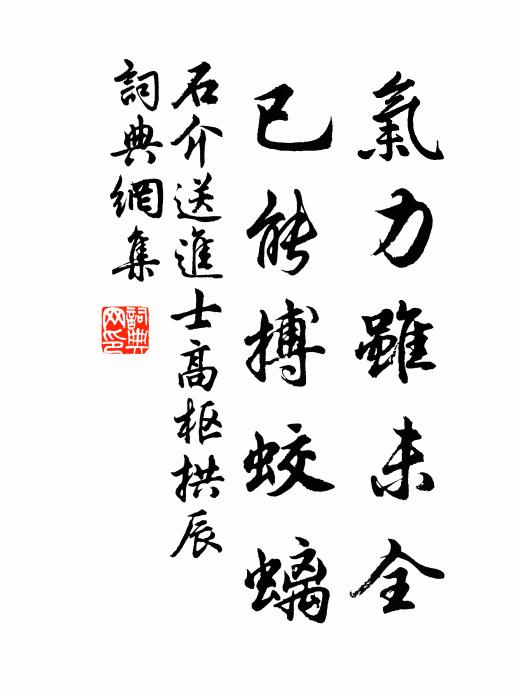 氣力雖未全
已能搏蛟螭
石介送進士高枢拱辰
詞典網集
詞典网印